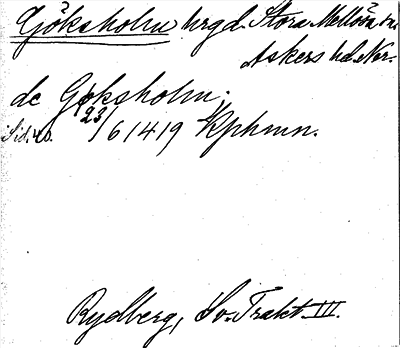 Göksholm hrgd. Stora Mellösa sn.
Askers hd. När.
de Gøksholm.
Sid. 40. 23/6 1419 Kphmn.
Rydberg, Sv. Trakt. III.